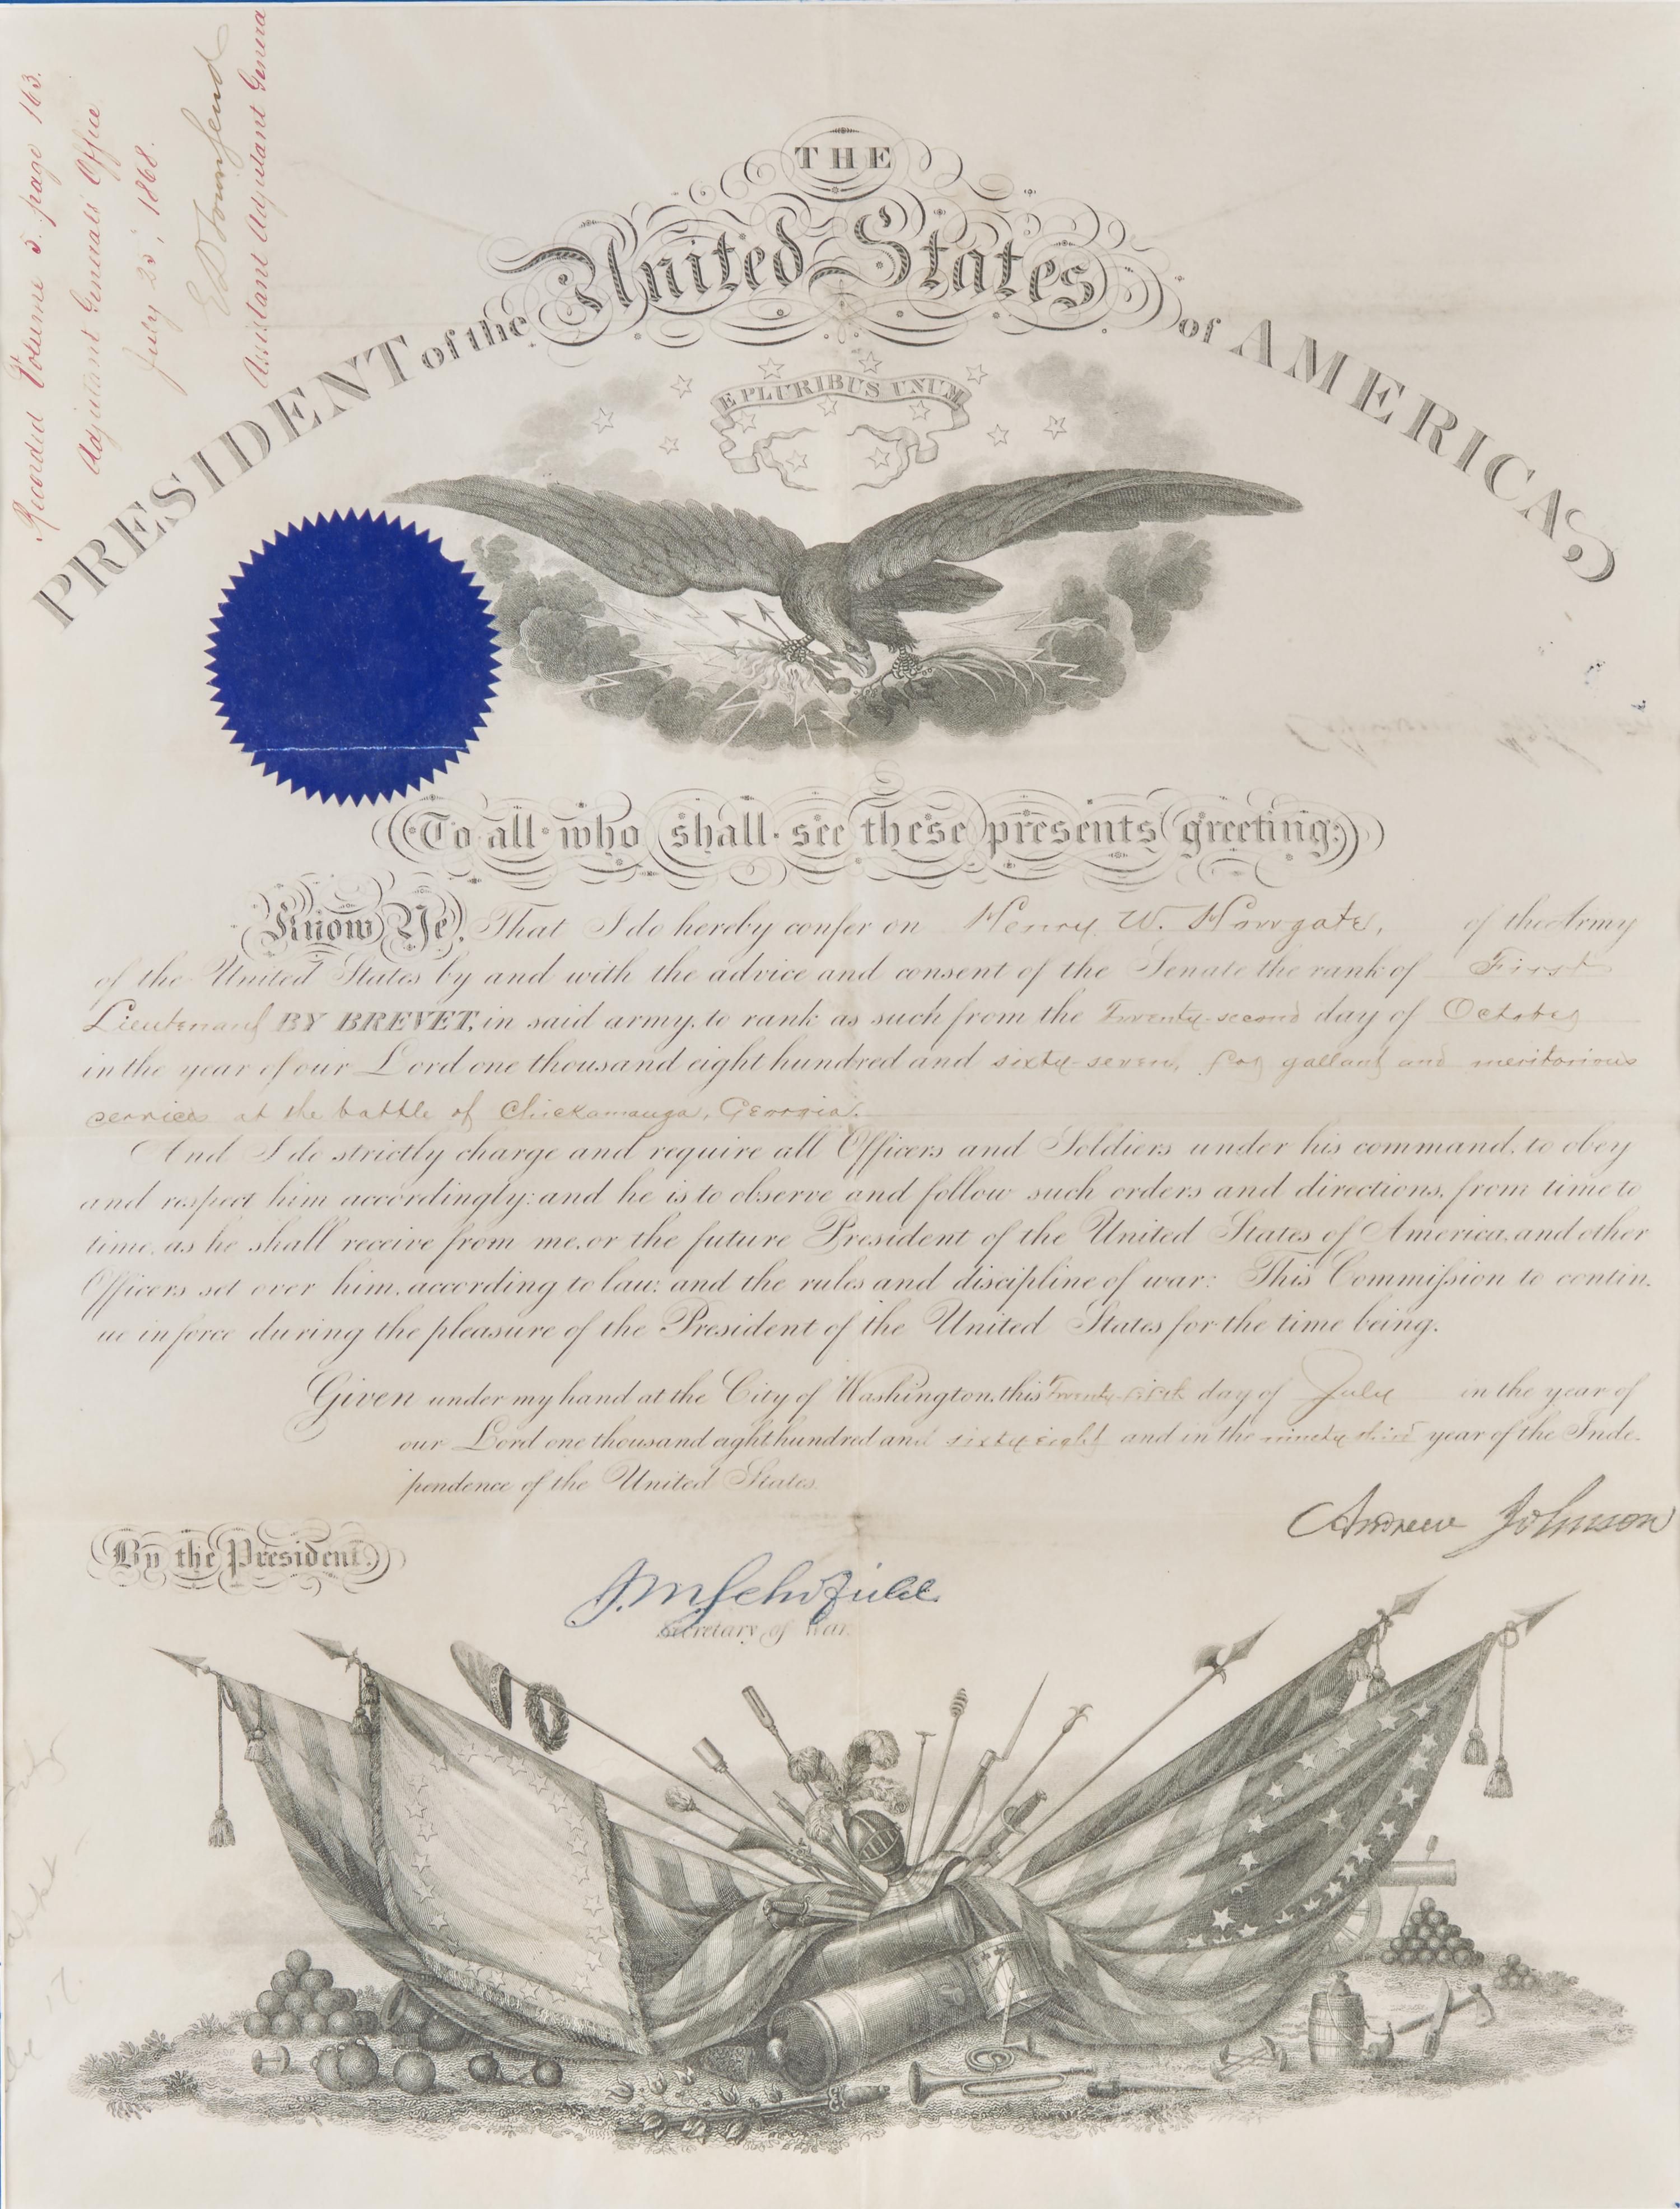 Recorded Volume 5. page 163.
Adjutant Generals Office
July 25, 1868.
E D Townsend
Assistant Adjutant Genera
THE
PRESIDENT of the United States of AMERICA,
E PLURIBUS UNUM
To all who shall see these presents greeting:
Know Ye, That I do hereby confer on Henry W. Howgate, of the Army
of the United States by and with the advice and consent of the Senate the rank of First
Lieutenant BY BREVET, in said army, to rank as such from the Twenty-second day of October
in the year of our Lord one thousand eight hundred and sixty-seven, for gallant and meritorious
services at the battle of Chickamauga, Georgia.
And I do strictly charge and require all Officers and Soldiers under his command, to obey
and respect him accordingly: and he is to observe and follow such orders and directions, from time to
time, as he shall receive from me, or the future President of the United States of America, and other
Officers set over him, according to law; and the rules and discipline of war: This Commission to contin-
ue in force during the pleasure of the President of the United States for the time being.
Given under my hand at the City of Washington, this day of July in the year of
our Lord one thousand eight hundred and sixty eight and in the ninety third year of the Inde-
pendence of the United States.
Andrew Johnson
By the President.
J.M. Schofield
Secretary of War.